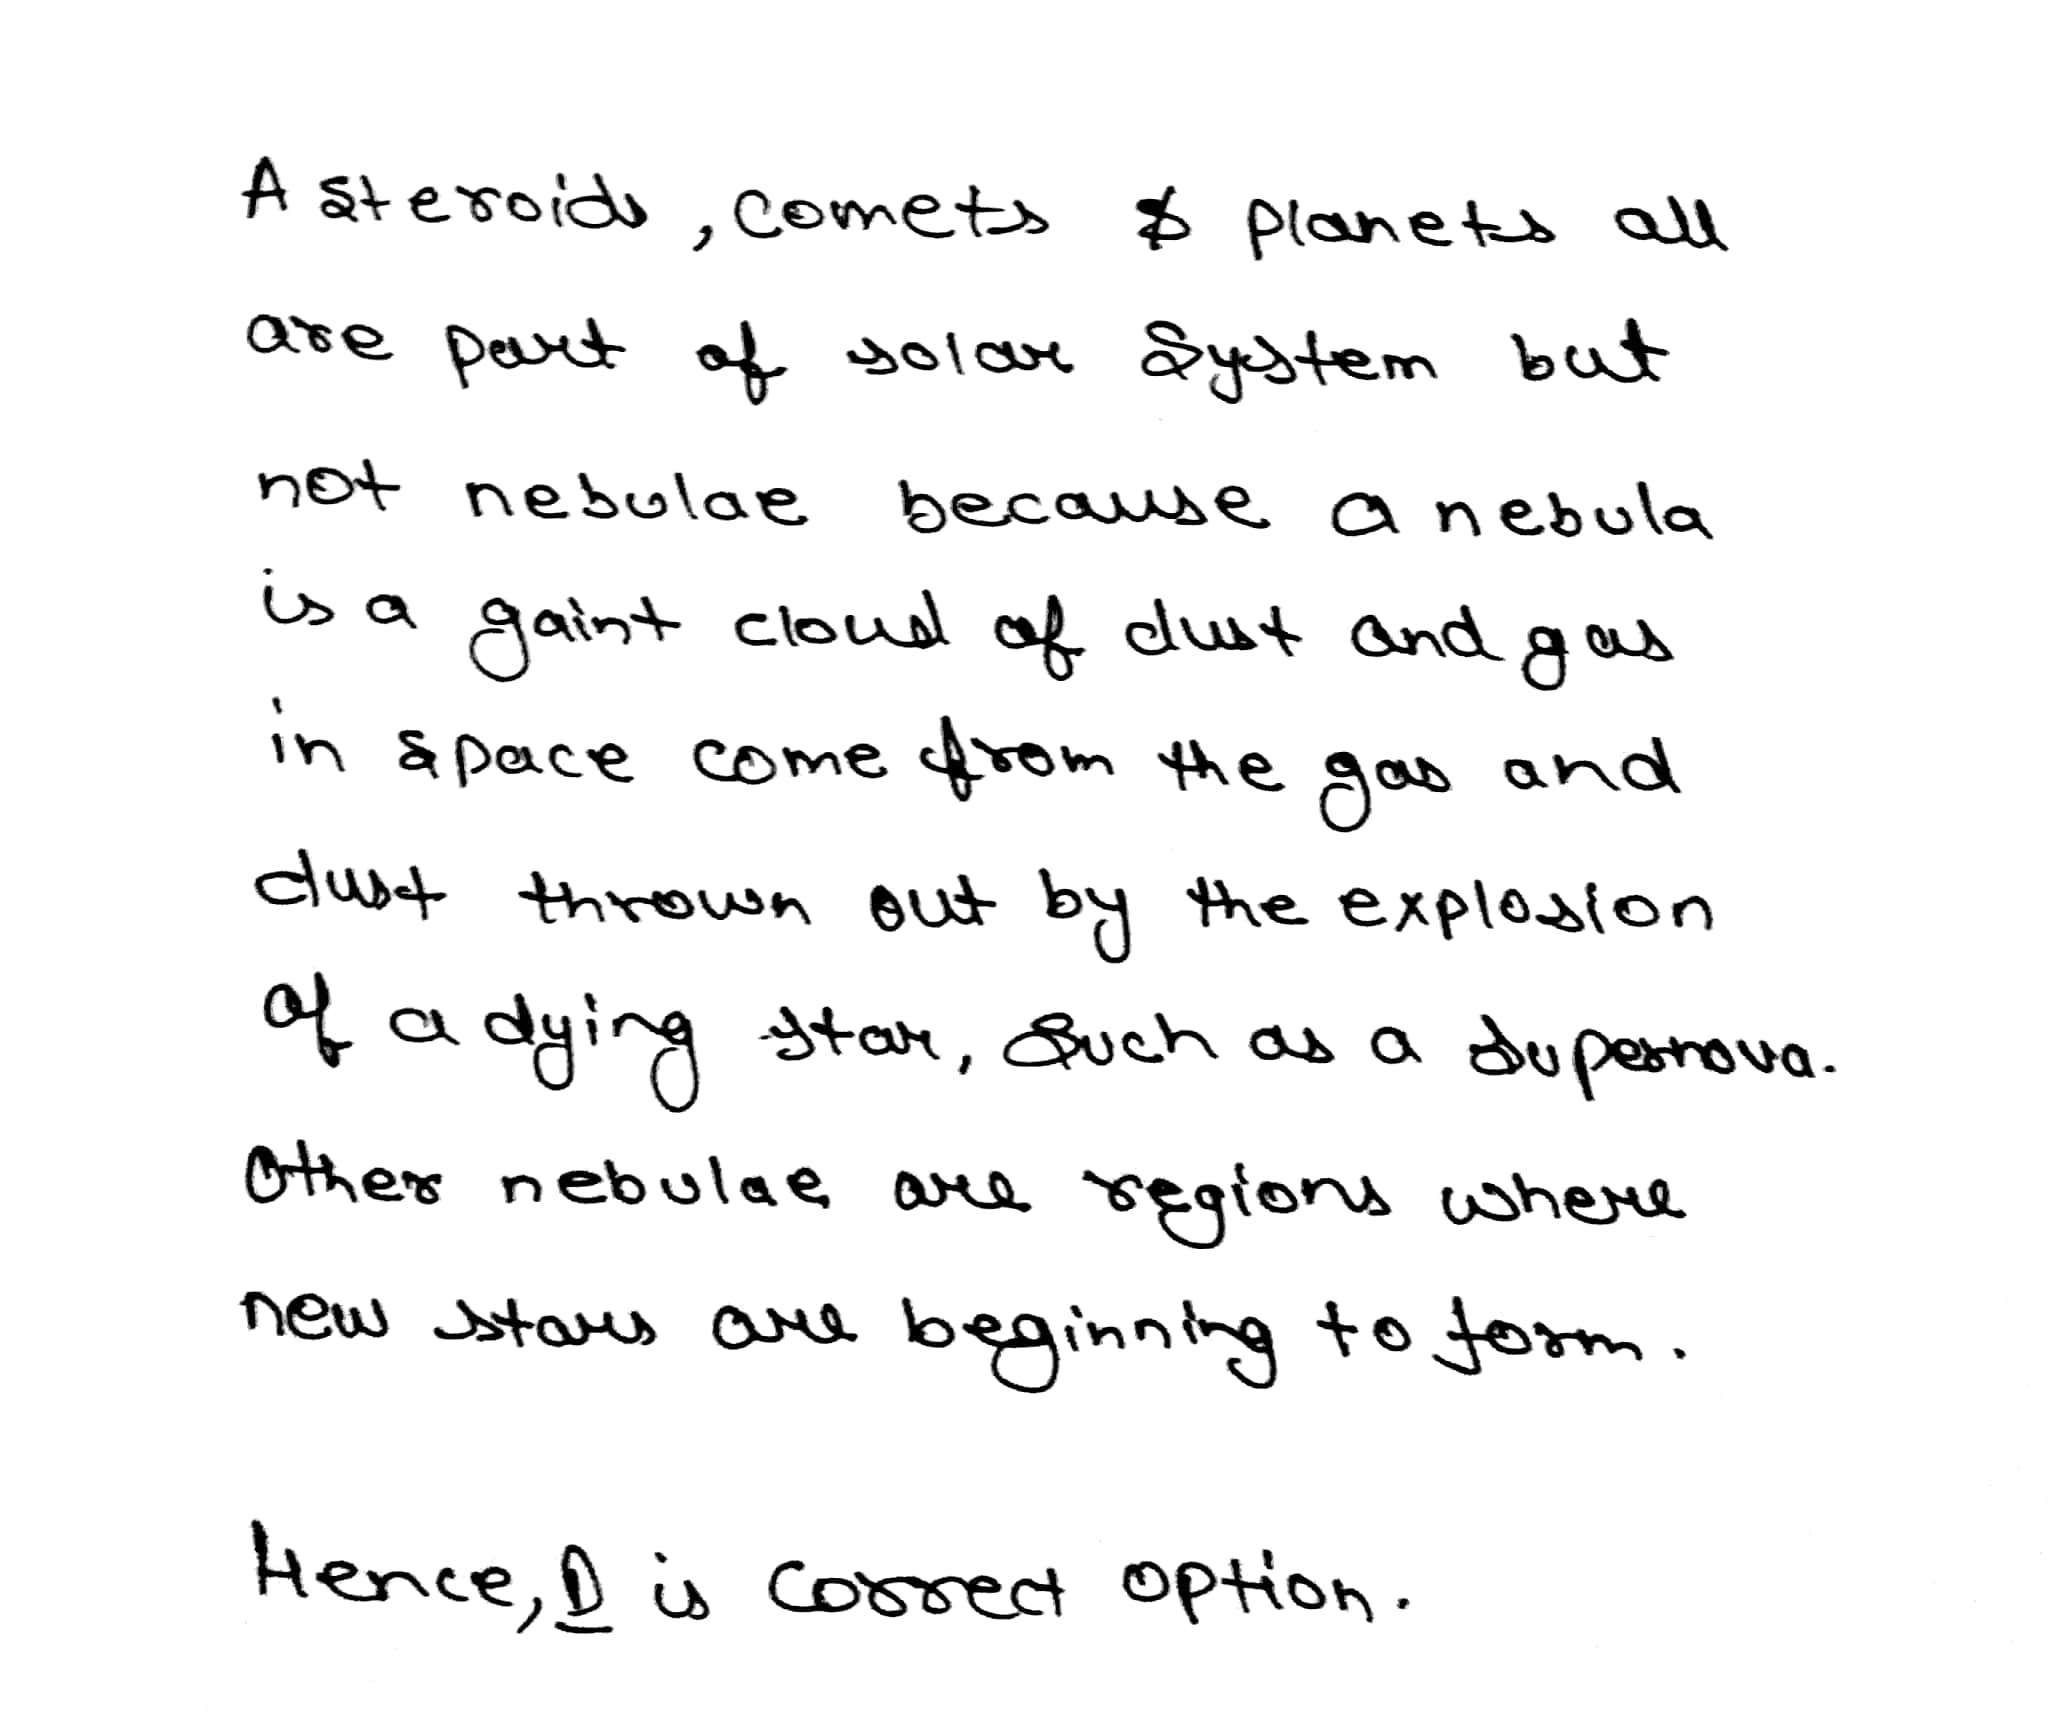 Asteroids, comets & planets all
are part of solar system but
not nebulae because a nebula
is a gaint cloud of dust and gas
in space come from the gas and
dust thrown out by the explosion
of a dying star, such as a supernova.
Other nebulae are regions where
new stars are beginning to form.
Hence, D is correct option.